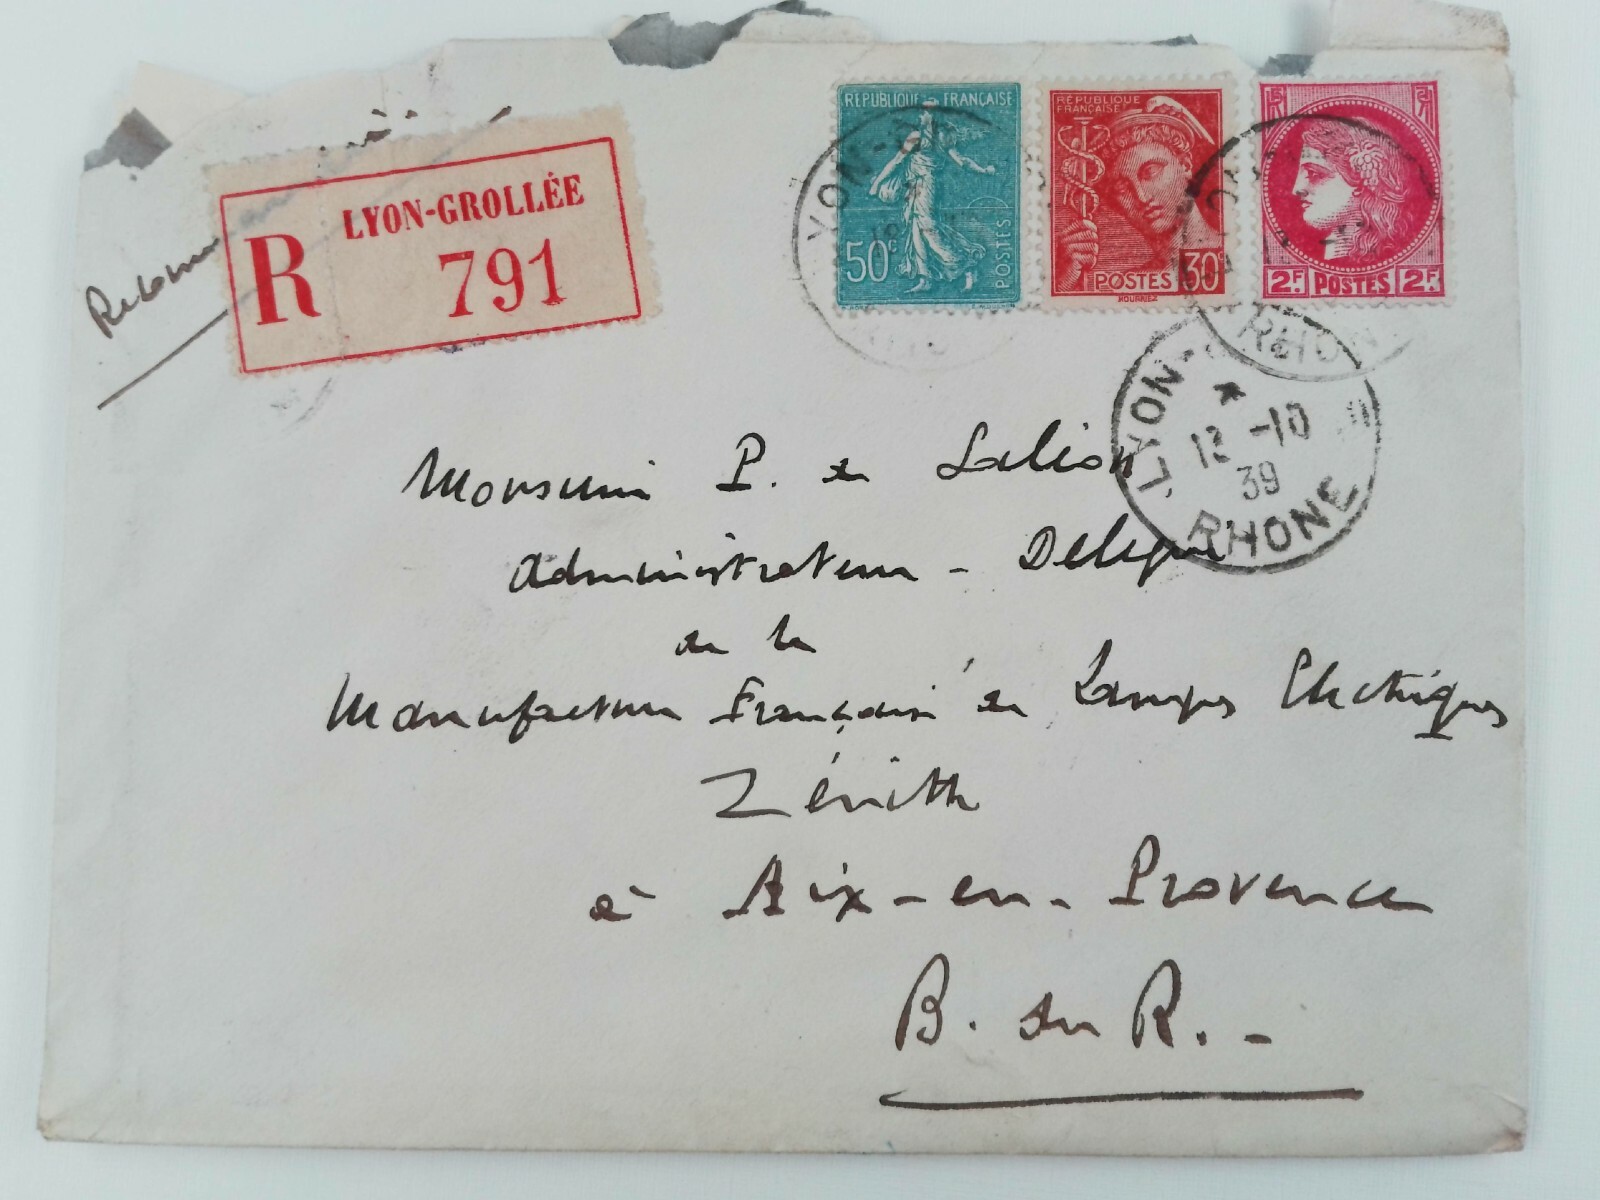 Retour
R
LYON-GROLLÉE
791
RÉPUBLIQUE FRANÇAISE
50c
POSTES
RÉPUBLIQUE
FRANÇAISE
POSTES 30c
HOURRIEZ
2F POSTES 2F
LYON-
RHONE
LYON
12 -10
39
RHONE
Monsieur P. de Lalion
Administrateur - Délégué
de la
Manufacture Française de Lampes Electriques
Zénith
à Aix-en-Provence
B. du R. -